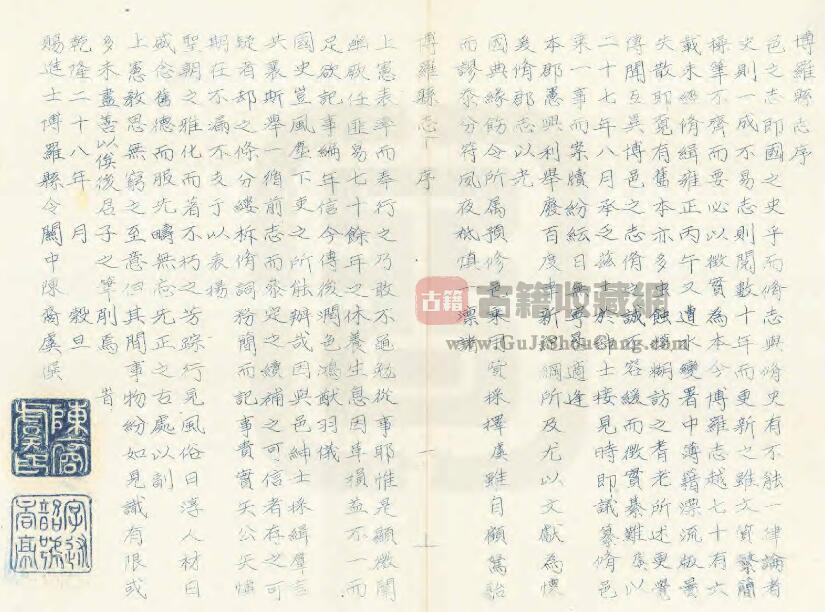 博羅縣志序
邑之志即國之史乎而脩志與脩史有不能一律論者
史則一成不易志則閱數十年而更新之雖文質繁簡
操筆不齊而要必以徵實為本今博羅志越七十有六
載未經脩緝雍正丙午又遭水變署中薄籍漂流版曇
失散耶覓有舊本亦多虫蝕糢糊訪之耆老所述更覺
傳聞互異博邑之志脩誠不容緩而徵實綦難虞以
二十七年八月承乏茲土於邑士接見時即議纂脩邑
乘一事而案牘紛紜日無寧晷適逢
本郡憲興利舉廢百度聿新 綱所及尤以文獻為懷
爰脩郡志以光
國典緣飭令所屬預修邑乘 資採擇虞雖自顧駑駘
而謬忝分符夙夜祗慎一凛諸
博羅縣志 序 一
上憲表率而奉行之乃敢不黽勉從事耶惟是顯微闡
幽歐任匪易七十餘年之休養生息因革損益不一而
足欲記事編年信今傳後潤色鴻猷羽儀
國史豈風塵下吏之所能辦哉因與邑紳士採緝羣言
共襄斯舉一循前志而參定之續補之可信者存之可
疑者却之條分縷柝脩詞務簡而記事貴實矢公矢慎
期在不漏不支于以表揚
聖朝之雅化而著不朽之芳踪行見風俗日淳人材日
盛念舊德而服先疇無忘先正之古處以副
上憲敎思無窮之至意但其間事物紛如見識有限或
多未盡善以俟後君子之筆削焉 旹
乾隆二十八年 月 穀旦
賜進士博羅縣令關中陳裔虞譔
古籍收藏網
www.GuJiShouCang.com
陳裔虞印